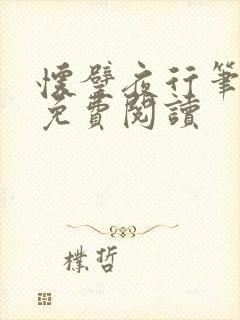 懷璧夜行筆
免費閱讀
樸哲